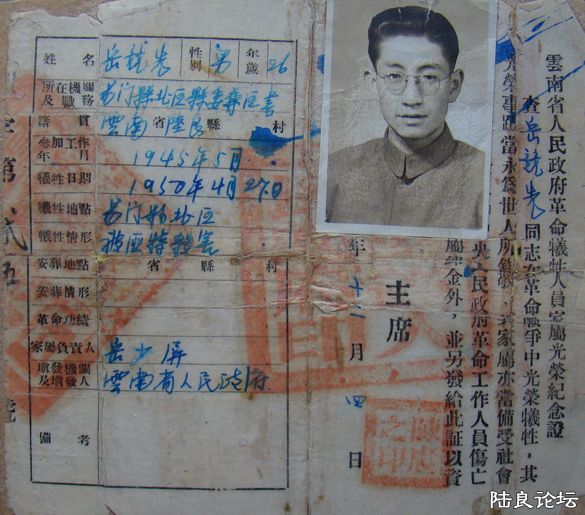 雲南省人民政府革命犧牲人員家屬光榮紀念證
查岳誌長同志在革命戰爭中光榮犧牲,其
光榮事蹟當永爲世人所
家屬亦當備受社會
央人民政府革命工作人員傷亡
金外,並另發給此証以資
主席
年十二月四日
之印
姓名 岳 性別 男 年歲 26
所在機關及職務 易门縣北区縣委 区書
籍貫 雲南省陸良縣 村
參加工作年月 1945年5月
犧牲日期 1950年4月27日
犧牲地點 易门 北区
犧牲情形
安葬地點 省 縣 村
安葬情形
革命功績
家屬負責人 岳少屏
填發機關及填發人 雲南省人民政府
備考
字第
號
陆良论坛